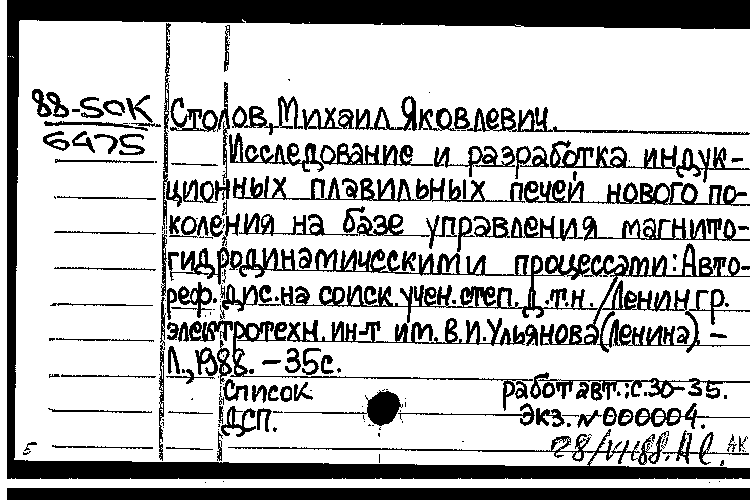 88-50К
6475
Столов, Михаил Яковлевич.
Исследование и разработка индук-
ционных плавильных печей нового по-
коления на базе управления магнито-
гидродинамическими процессами: Авто-
реф. дис. на соиск. учен. степ. д.т.н. / Ленингр.
электротехн. ин-т им. В.И. Ульянова (Ленина). -
Л., 1988. - 35с.
Список работ авт.: с.30-35.
ДСП. Экз. №000004.
28/VI 88.
АК
5